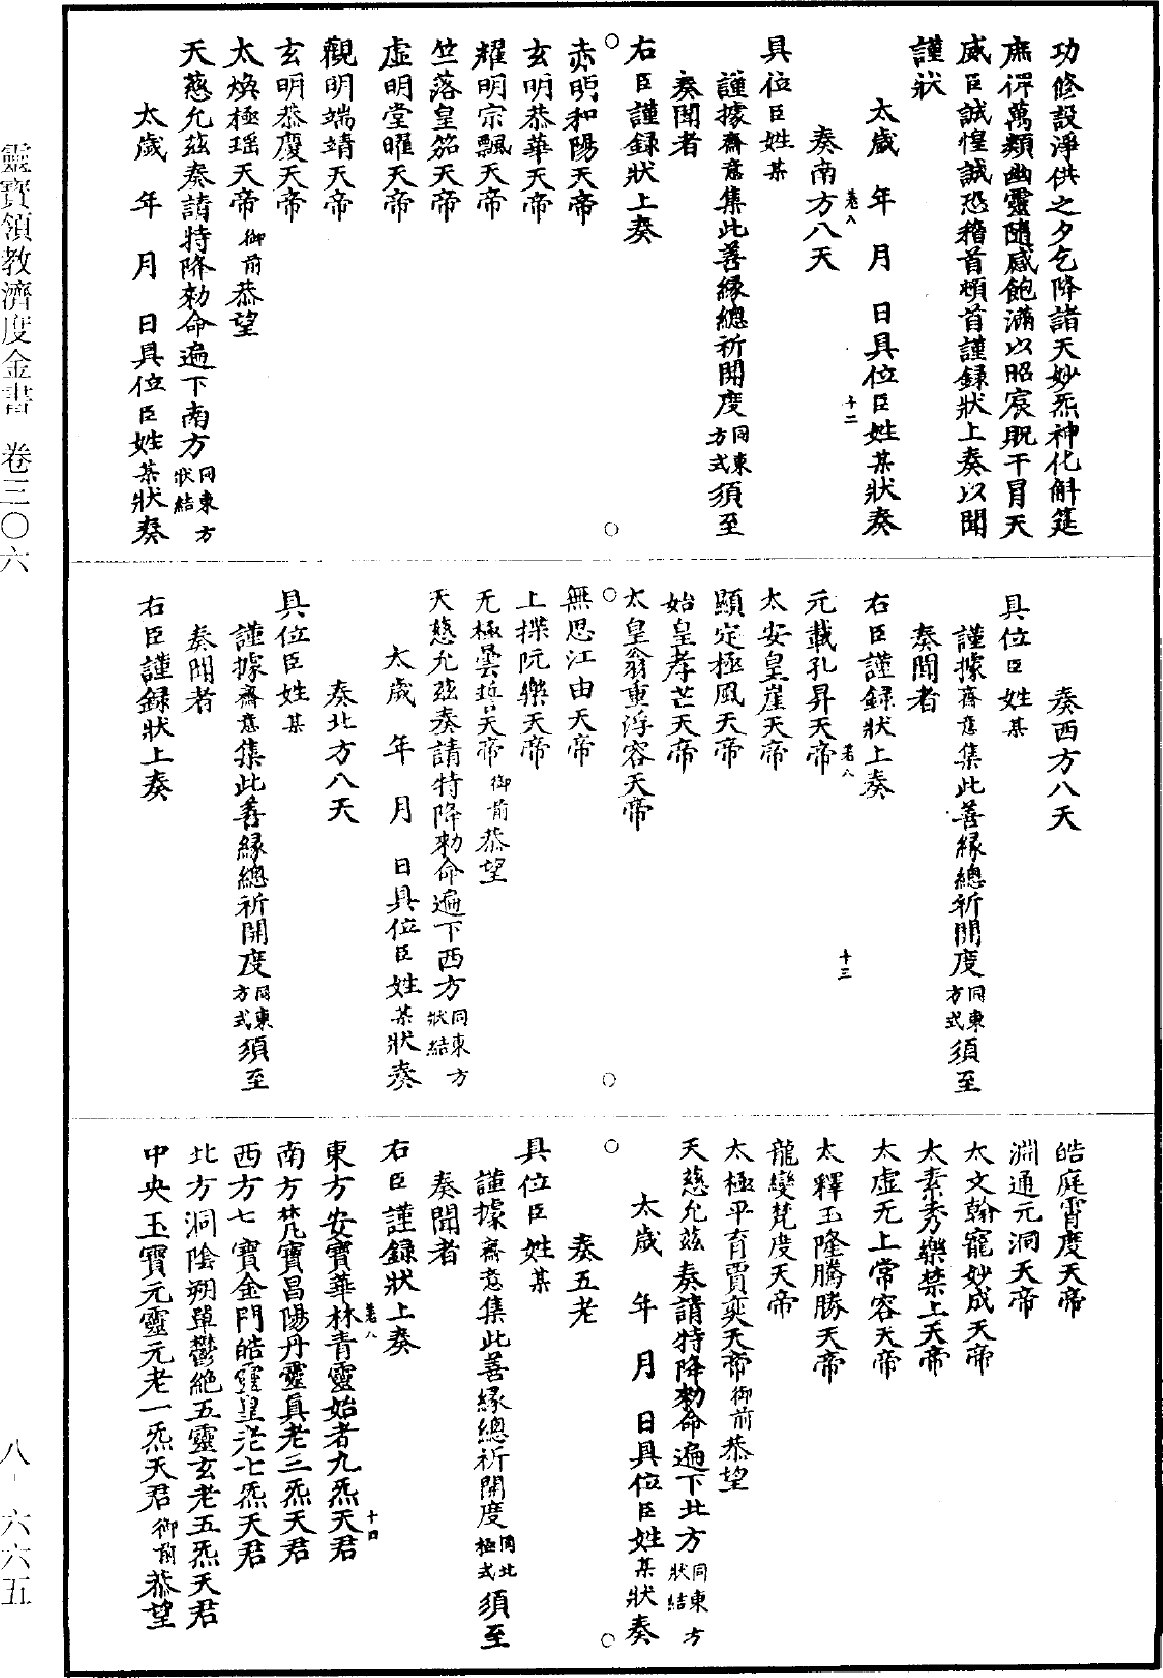 功修設淨供之夕乞降諸天妙炁神化斛筵
肅俾萬類幽靈隨感飽滿以昭宸貺干冒天
威臣誠惶誠恐稽首頓首謹錄狀上奏以聞
謹狀
太歲　年　月　日具位臣姓某狀奏
卷八　十二
奏南方八天
具位臣姓某
謹據齋意集此善緣總祈開度同東方式須至
奏聞者
右臣謹錄狀上奏
赤明和陽天帝
玄明恭華天帝
耀明宗飄天帝
竺落皇笳天帝
虛明堂曜天帝
觀明端靖天帝
玄明恭慶天帝
太煥極瑶天帝御前恭望
天慈允茲奏請特降勑命遍下南方同東方狀結
太歲　年　月　日具位臣姓某狀奏
奏西方八天
具位臣姓某
謹據齋意集此善緣總祈開度同東方式須至
奏聞者
右臣謹錄狀上奏
卷八　十三
元載孔昇天帝
太安皇崖天帝
顯定極風天帝
始皇孝芒天帝
太皇翁重浮容天帝
無思江由天帝
上揲阮樂天帝
无極曇誓天帝御前恭望
天慈允茲奏請特降勑命遍下西方同東方狀結
太歲　年　月　日具位臣姓某狀奏
奏北方八天
具位臣姓某
謹據齋意集此善緣總祈開度同東方式須至
奏聞者
右臣謹錄狀上奏
皓庭霄度天帝
淵通元洞天帝
太文翰寵妙成天帝
太素秀樂禁上天帝
太虛无上常容天帝
太釋玉隆騰勝天帝
龍變梵度天帝
太極平育賈奕天帝御前恭望
天慈允茲奏請特降勑命遍下北方同東方狀結
太歲　年　月　日具位臣姓某狀奏
奏五老
具位臣姓某
謹據齋意集此善緣總祈開度同北極式須至
奏聞者
右臣謹錄狀上奏
卷八　十四
東方安寶華林青靈始老九炁天君
南方梵寶昌陽丹靈真老三炁天君
西方七寶金門皓靈皇老七炁天君
北方洞陰朔單鬱絕五靈玄老五炁天君
中央玉寶元靈元老一炁天君御前恭望
靈寶領教濟度金書　卷三〇六
八-六六五